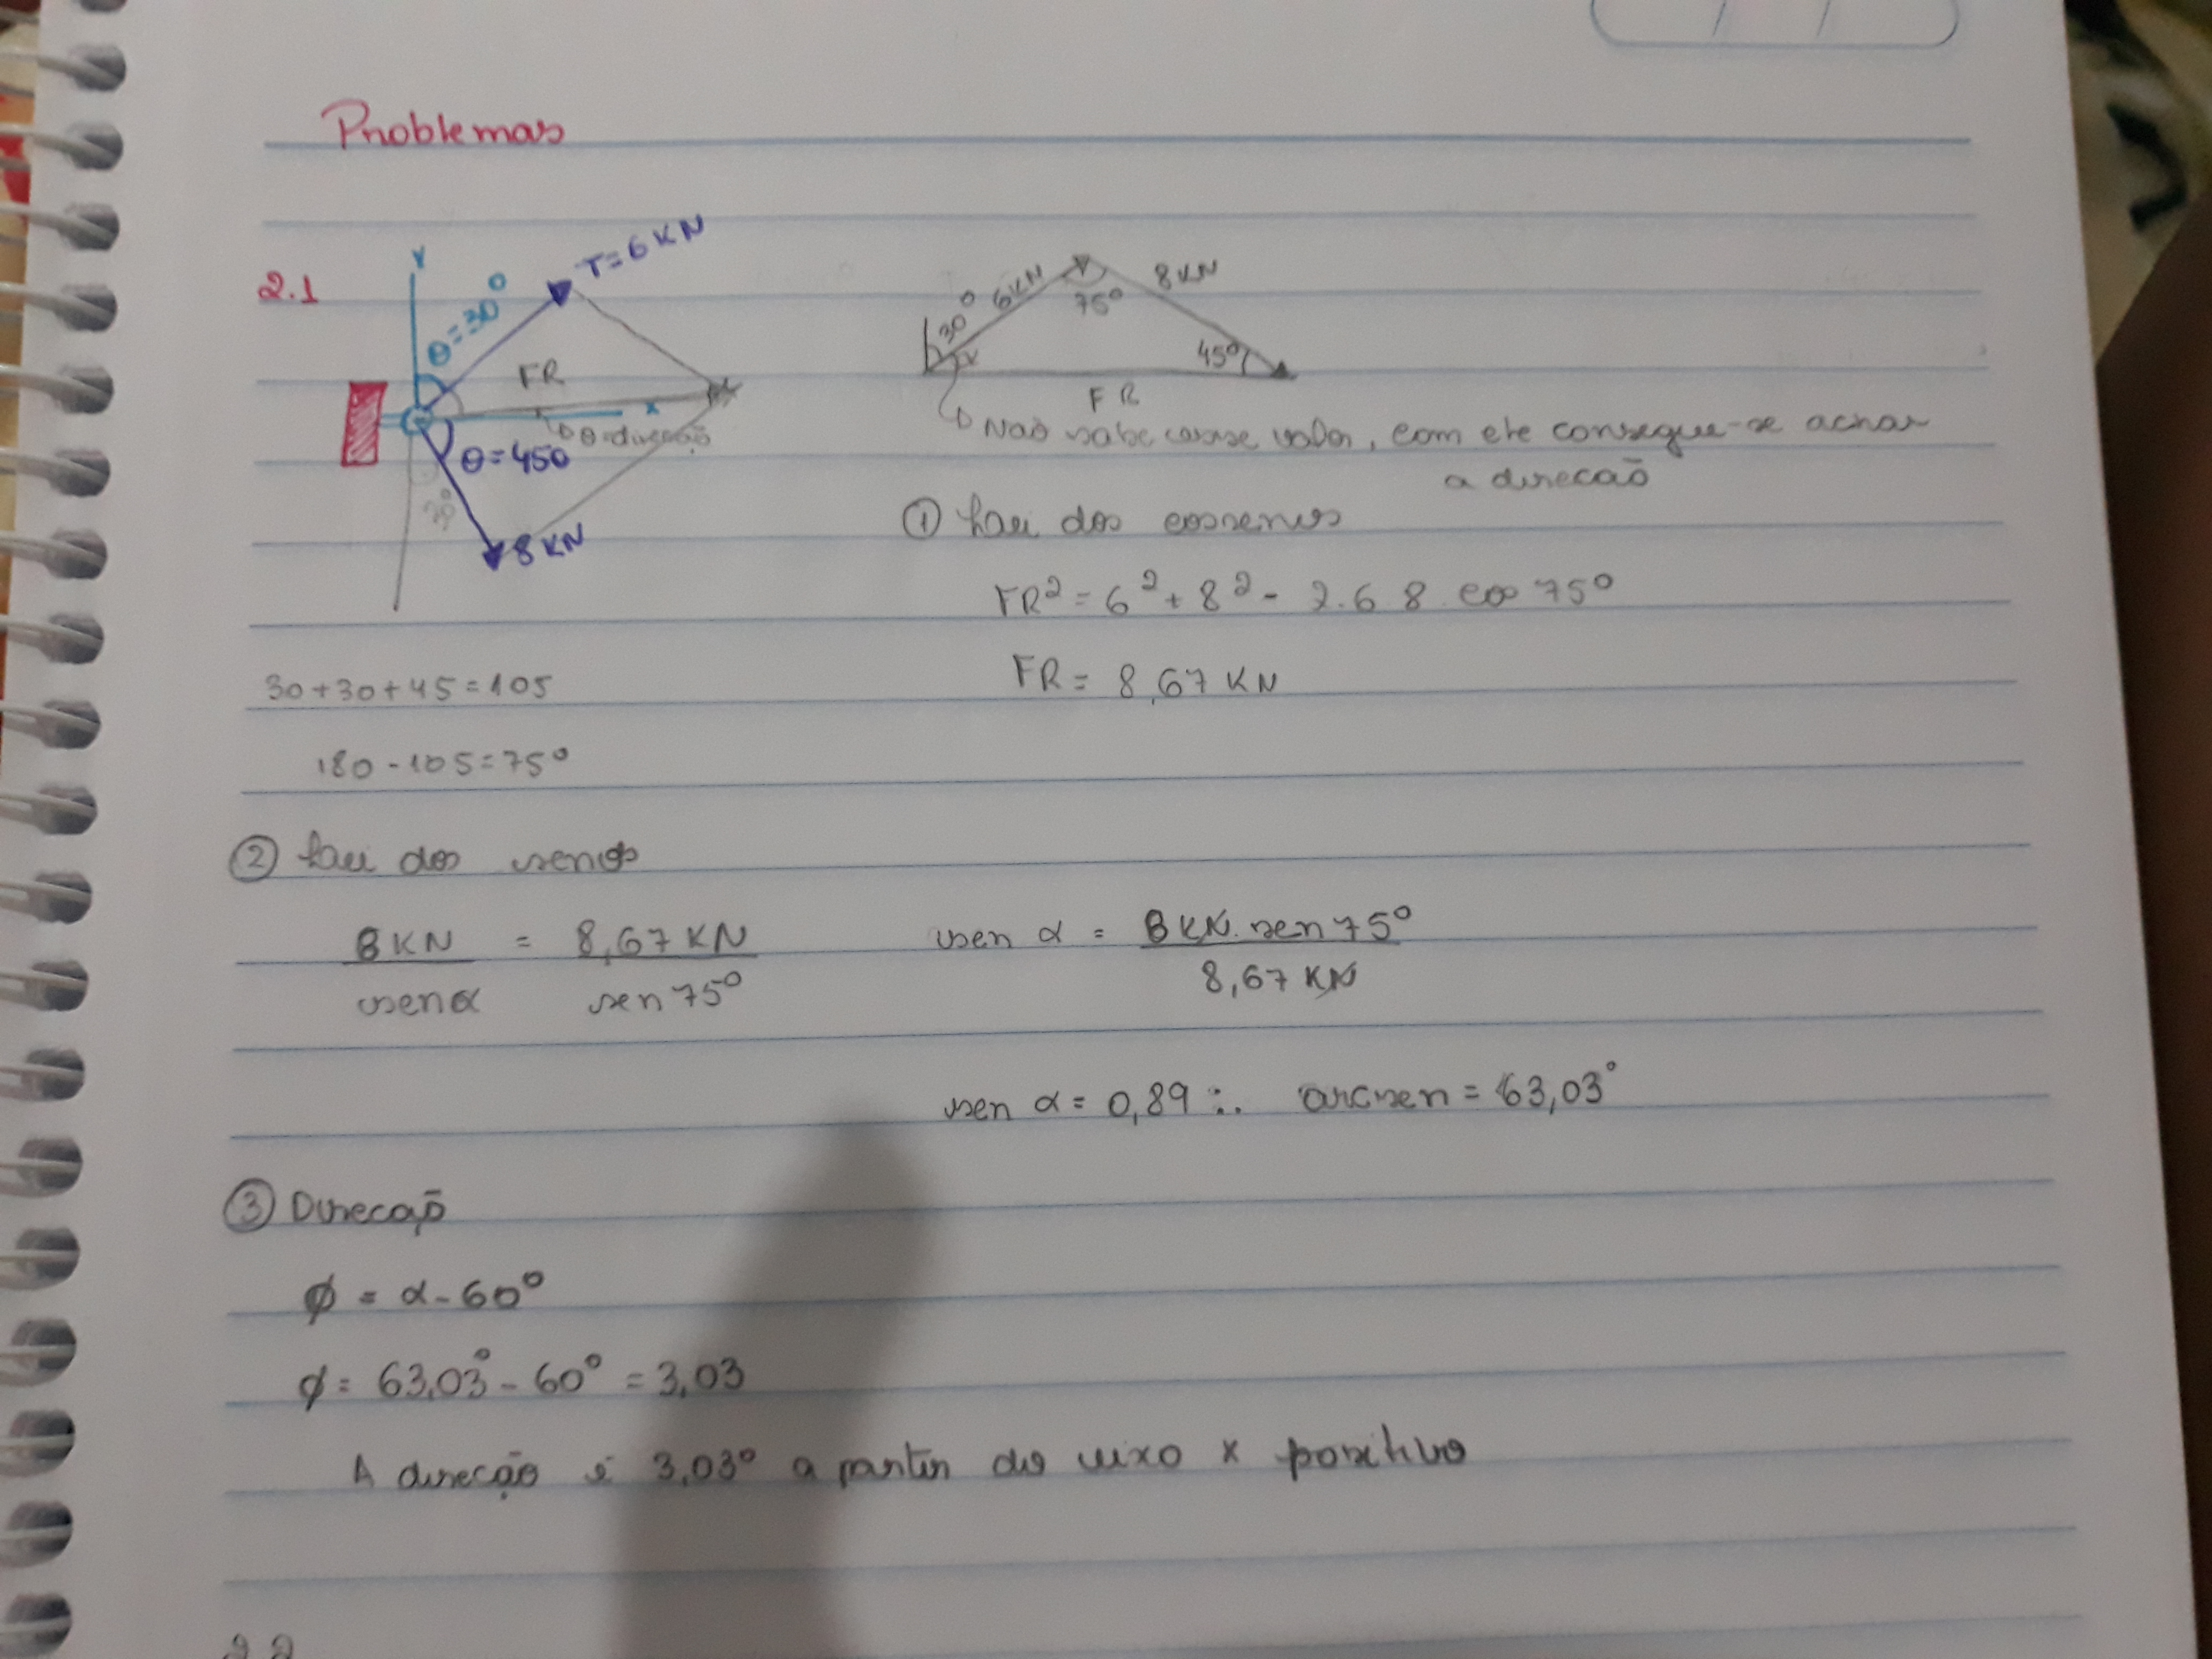 Problemas
2.1
Y
θ=30°
T=6 KN
FR
x
θ=direção
θ=450
8 KN
30° 6KN 75° 8KN
45°
FR
Não sabe esse valor, com ele consegue-se achar
a direcão
① Lei dos cossenos
FR² = 6² + 8² - 2.6 8. cos 75°
FR = 8,67 KN
30+30+45=105
180-105=75°
② Lei dos senos
8 KN = 8,67 KN
sen α sen 75°
sen α = 8 KN. sen 75°
8,67 KN
sen α = 0,89 ∴ arcsen = 63,03°
③ Direcaō
ϕ = α - 60°
ϕ = 63,03° - 60° = 3,03
A direcão é 3,03° a partir do eixo x positivo